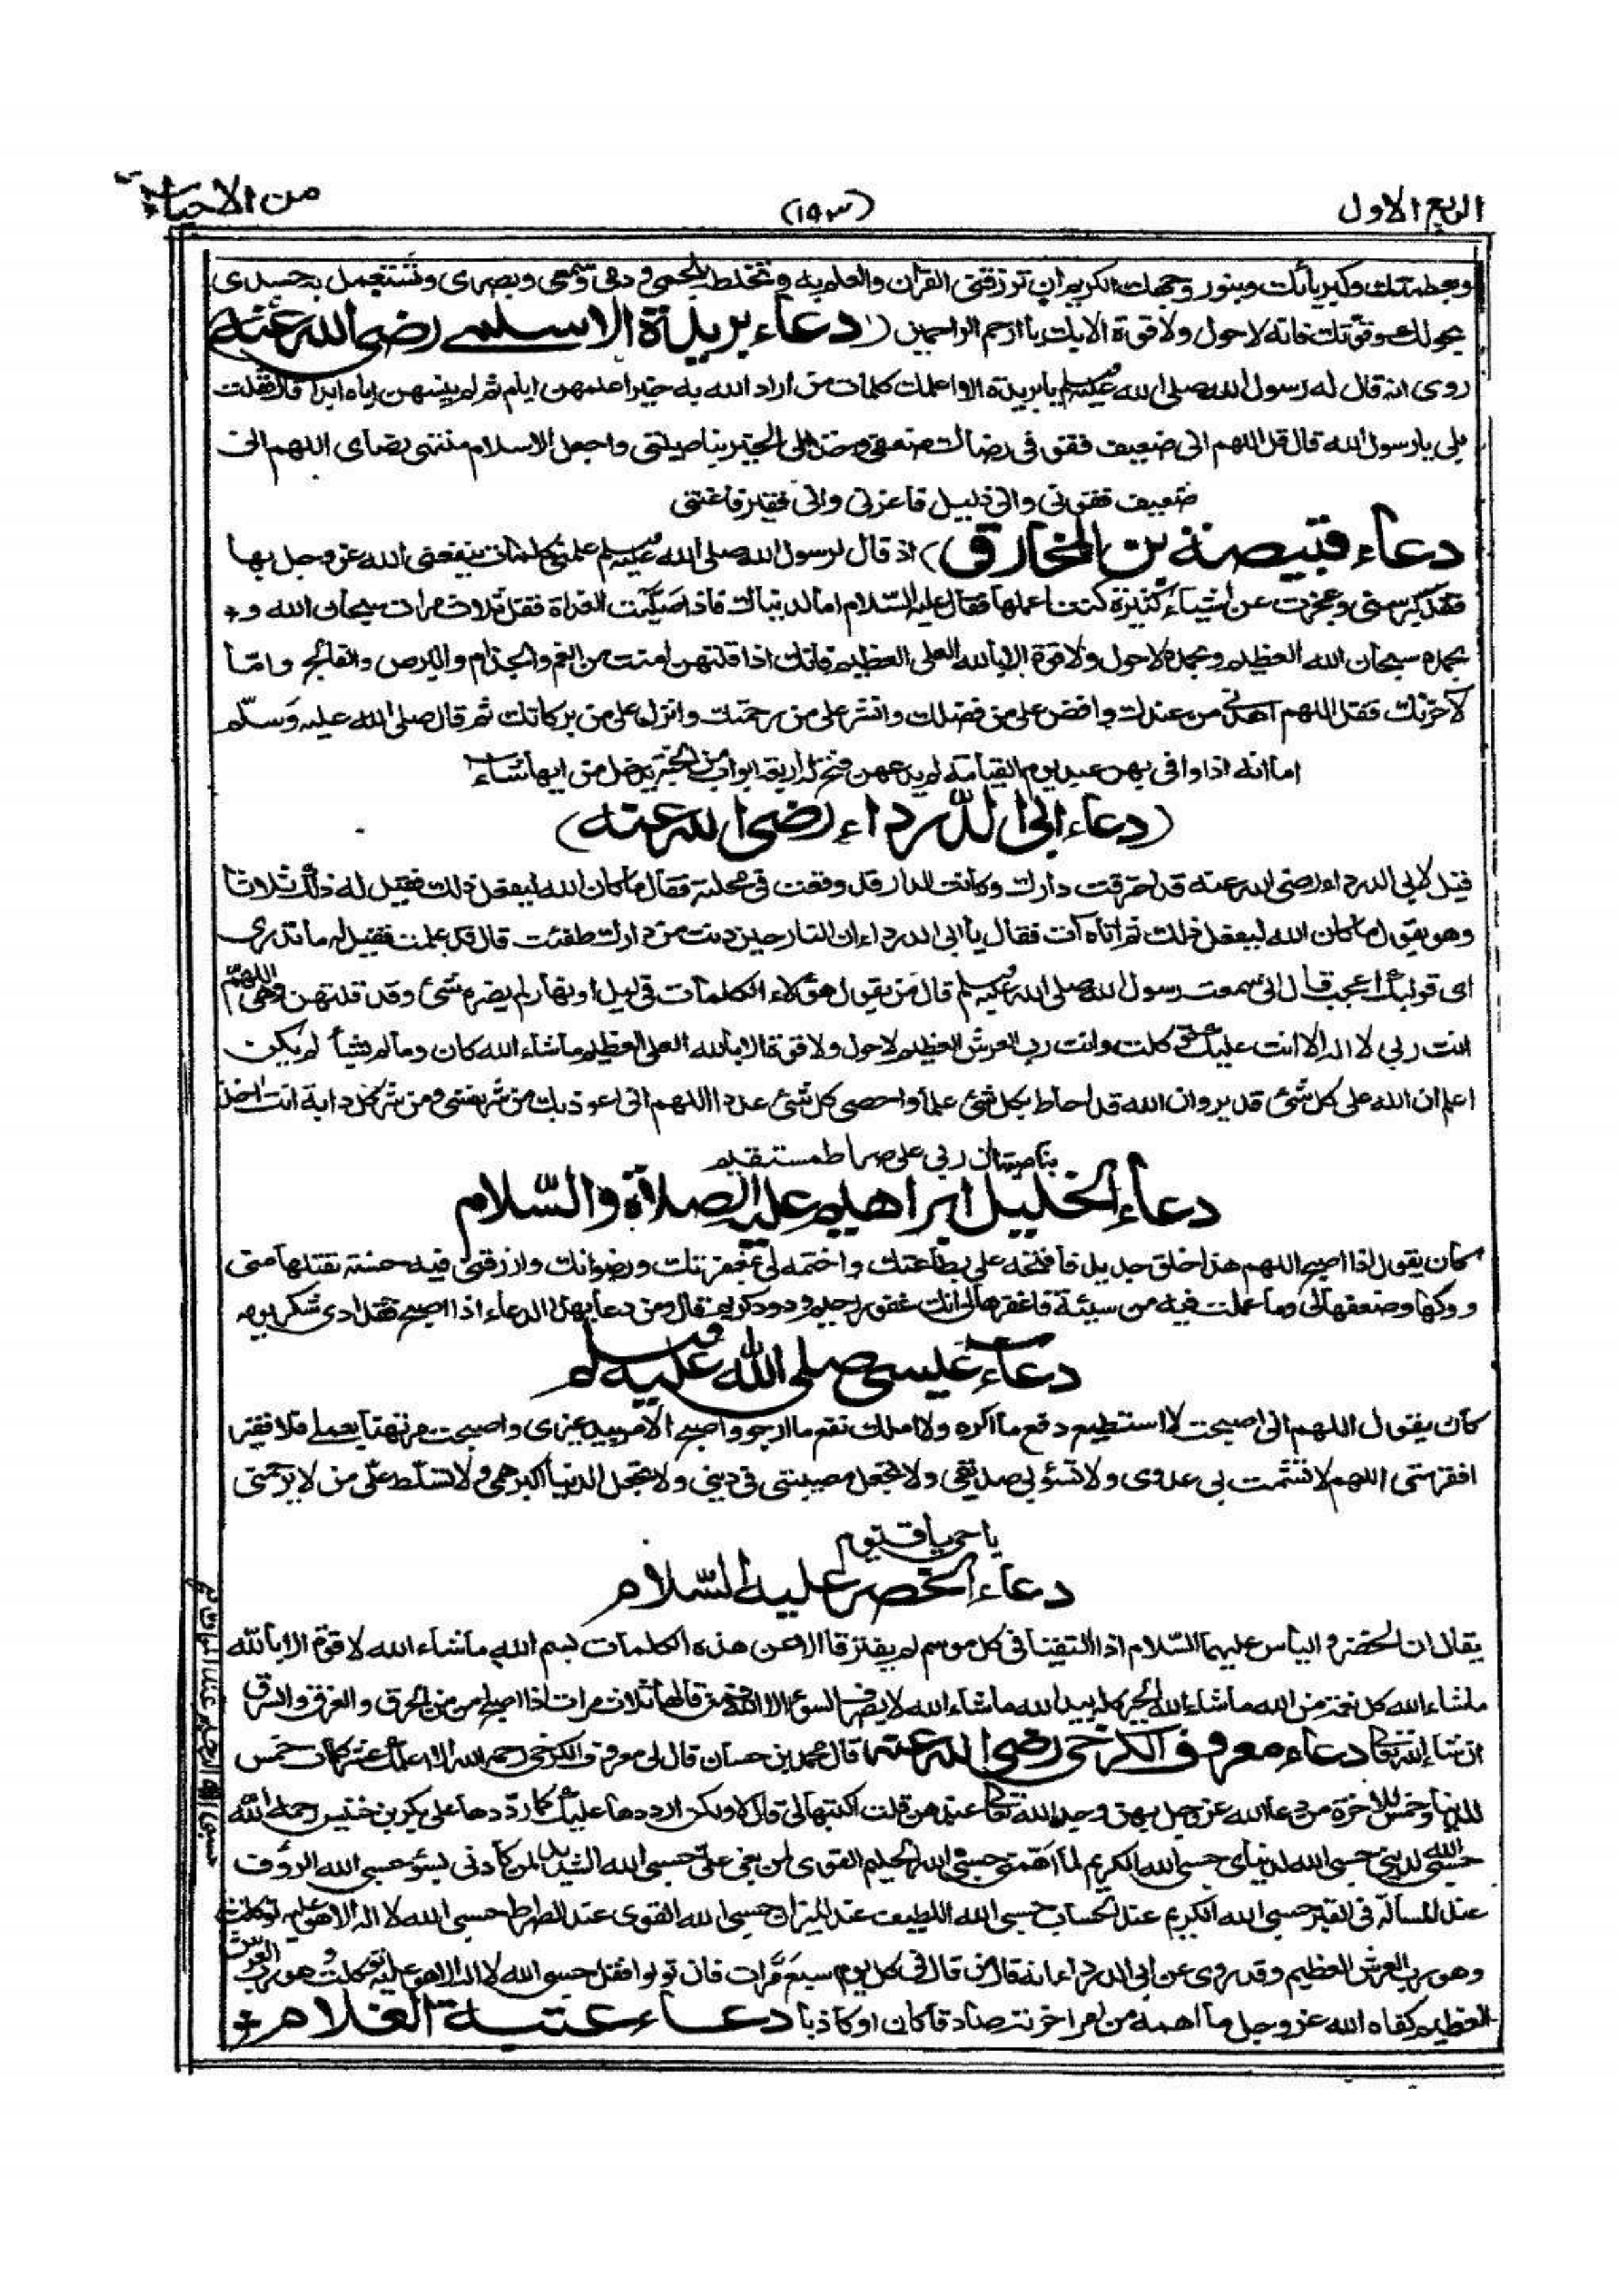 الربع الاول
(١٩٣)
من الاحياء
وبعظمتك وكبريائك وبنور وجهك الكريم ان ترزقنى القرآن والعلم به وتخلطه بلحمى ودمى وسمعى وبصرى وتستعمل به جسدى
بحولك وقوتك فانه لا حول ولا قوة الا بك يا ارحم الراحمين (دعاء بريدة الاسلمى رضى الله عنه)
روى انه قال له رسول الله صلى الله عليه وسلم يا بريدة الا اعلمك كلمات من اراد الله به خيرا علمهن اياه ثم لم ينسهن اياه ابدا قال فقلت
بلى يا رسول الله قال قل اللهم انى ضعيف فقو فى رضاك ضعفى وخذ الى الخير بناصيتى واجعل الاسلام منتهى رضاى اللهم انى
ضعيف فقونى وانى ذليل فاعزنى وانى فقير فاغننى
دعاء قبيصة بن المخارق) اذ قال لرسول الله صلى الله عليه وسلم علمنى كلمات ينفعنى الله عز وجل بها
فقد كبر سنى وعجزت عن اشياء كثيرة كنت اعملها فقال عليه السلام اما لدنياك فاذا صليت الغداة فقل ثلاث مرات سبحان الله و
بحمده سبحان الله العظيم وبحمده لا حول ولا قوة الا بالله العلى العظيم فانك اذا قلتهن امنت من الغم والجذام والبرص والفالج واما
لآخرتك فقل اللهم اهدنى من عندك وافض على من فضلك وانشر على من رحمتك وانزل على من بركاتك ثم قال صلى الله عليه وسلم
اما انه اذا وافى بهن عبد يوم القيامة لم يدعهن فتح له اربعة ابواب من الجنة يدخل من ايها شاء
(دعاء ابى الدرداء رضى الله عنه)
قيل لابى الدرداء رضى الله عنه قد احترقت دارك وكانت النار قد وقعت فى محلته فقال ما كان الله ليفعل ذلك فقيل له ذلك ثلاثا
وهو يقول ما كان الله ليفعل ذلك ثم اتاه آت فقال يا ابى الدرداء ان النار حين دنت من دارك طفئت قال قد علمت فقيل له ما ندرى
اى قوليك اعجب قال انى سمعت رسول الله صلى الله عليه وسلم قال من يقول هؤلاء الكلمات فى ليل او نهار لم يضره شئ وقد قلتهن وهى اللهم
انت ربى لا اله الا انت عليك توكلت وانت رب العرش العظيم لا حول ولا قوة الا بالله العلى العظيم ما شاء الله كان وما لم يشأ لم يكن
اعلم ان الله على كل شئ قدير وان الله قد احاط بكل شئ علما واحصى كل شئ عددا اللهم انى اعوذ بك من شر نفسى ومن شر كل دابة انت آخذ
بناصيتها ان ربى على صراط مستقيم
دعاء الخليل ابراهيم عليه الصلاة والسلام
كان يقول اذا اصبح اللهم هذا خلق جديد فافتحه على بطاعتك واختمه لى بمغفرتك ورضوانك وارزقنى فيه حسنة تقبلها منى
وزكها وضعفها لى وما عملت فيه من سيئة فاغفرها لى انك غفور رحيم ودود كريم قال ومن دعا بهذا الدعاء اذا اصبح فقد ادى شكر يومه
دعاء عيسى صلى الله عليه وسلم
كان يقول اللهم انى اصبحت لا استطيع دفع ما اكره ولا املك نفع ما ارجو واصبح الامر بيد غيرى واصبحت مرتهنا بعملى فلا فقير
افقر منى اللهم لا تشمت بى عدوى ولا تسؤ بى صديقى ولا تجعل مصيبتى فى دينى ولا تجعل الدنيا اكبر همى ولا تسلط على من لا يرحمنى
يا حى يا قيوم
دعاء الخضر عليه السلام
يقال ان الخضر والياس عليهما السلام اذا التقيا فى كل موسم لم يفترقا الا عن هذه الكلمات بسم الله ما شاء الله لا قوة الا بالله
ما شاء الله كل نعمة من الله ما شاء الله الخير كله بيد الله ما شاء الله لا يصرف السوء الا الله فمن قالها ثلاث مرات اذا اصبح امن من الحرق والغرق والسرق
ان شاء الله تعالى دعاء معروف الكرخى رضى الله عنه قال محمد بن حسان قال لى معروف الكرخى رحمه الله الا اعلمك عشر كلمات خمس
للدنيا وخمس للآخرة من دعا الله عز وجل بهن وجد الله تعالى عندهن قلت اكتبها لى قال لا ولكن ارددها عليك كما رددها على بكر بن خنيس رحمه الله
حسبى الله لدينى حسبى الله لدنياى حسبى الله الكريم لما اهمنى حسبى الله الحليم القوى لمن بغى على حسبى الله الشديد لمن كادنى بسوء حسبى الله الرؤف
عند المسألة فى القبر حسبى الله الكريم عند الحساب حسبى الله اللطيف عند الميزان حسبى الله القوى عند الصراط حسبى الله لا اله الا هو عليه توكلت
وهو رب العرش العظيم وقد روى عن ابى الدرداء انه قال من قال فى كل يوم سبع مرات فان تولوا فقل حسبى الله لا اله الا هو عليه توكلت وهو رب العرش
العظيم كفاه الله عز وجل ما اهمه من امر آخرته صادقا كان او كاذبا دعاء عتبة الغلام